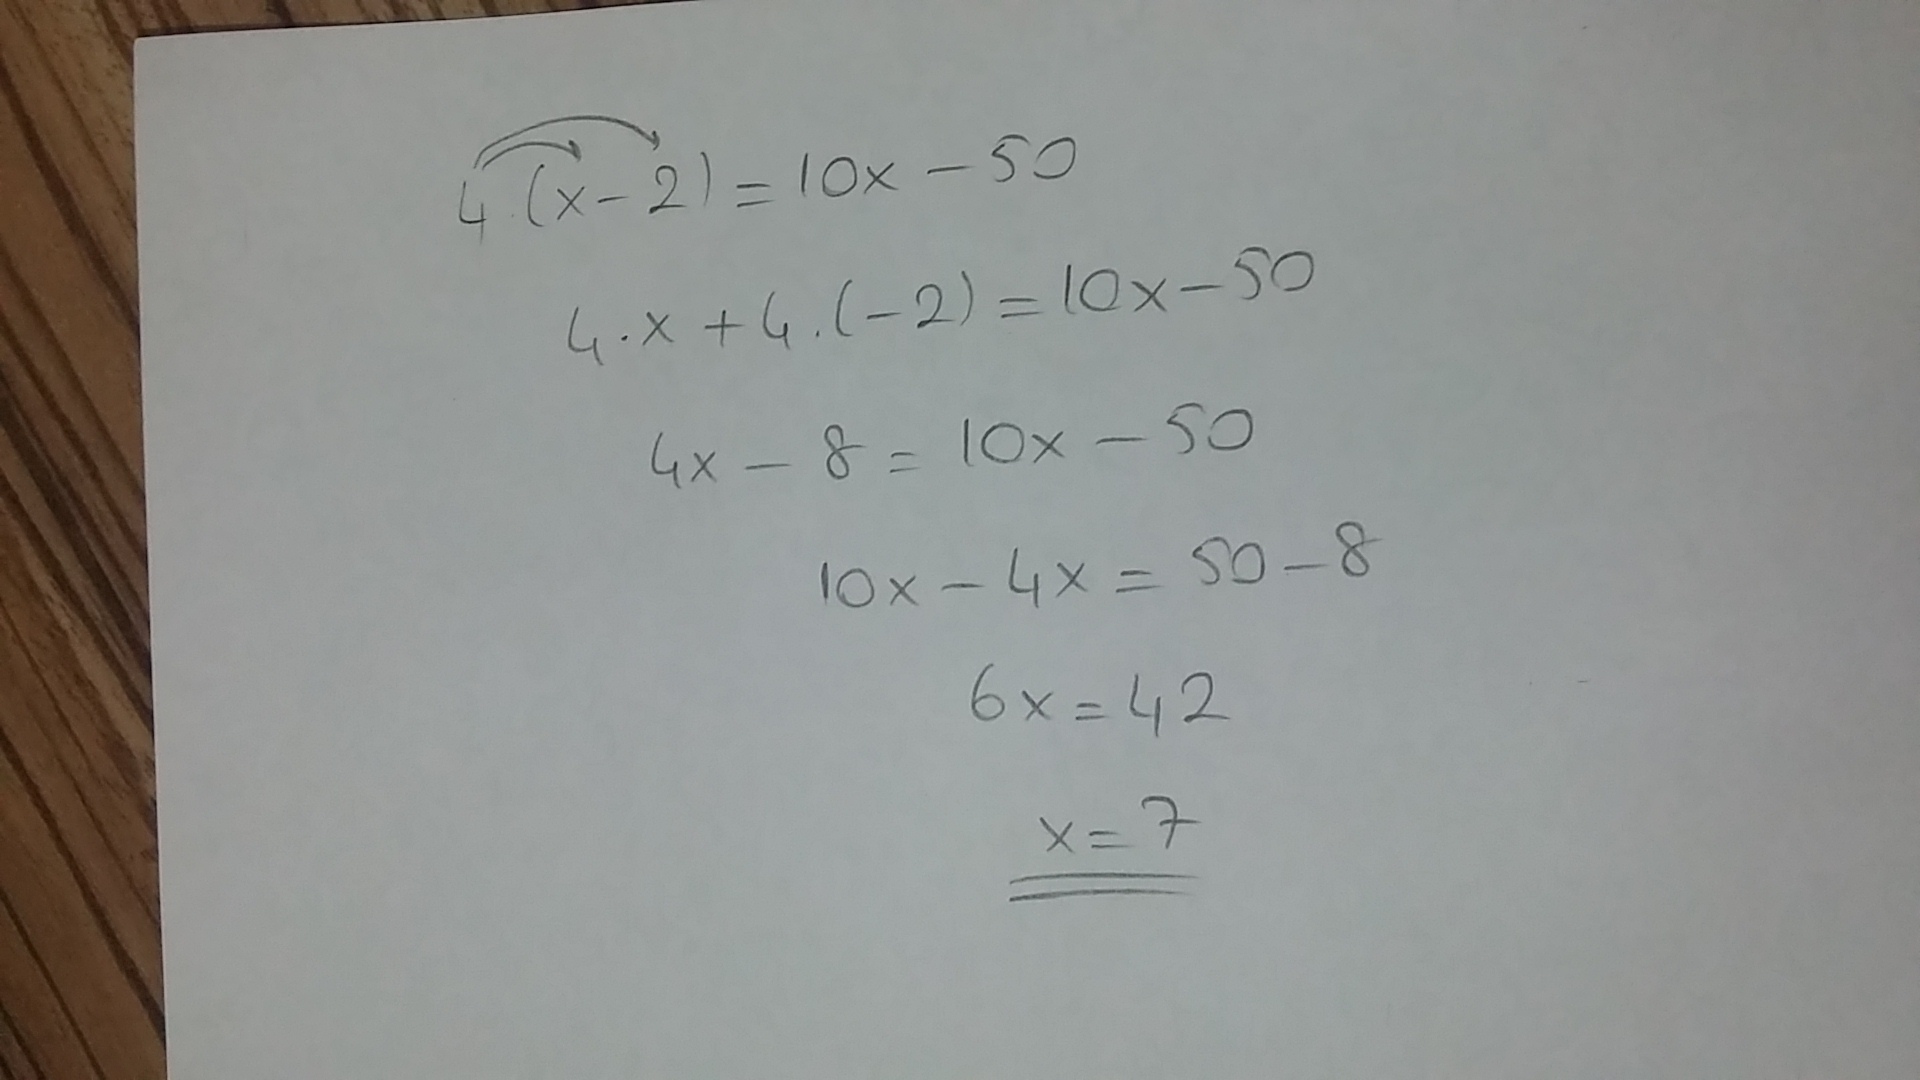 4.(x-2)=10x-50
4.x+4.(-2)=10x-50
4x-8=10x-50
10x-4x=50-8
6x=42
x=7